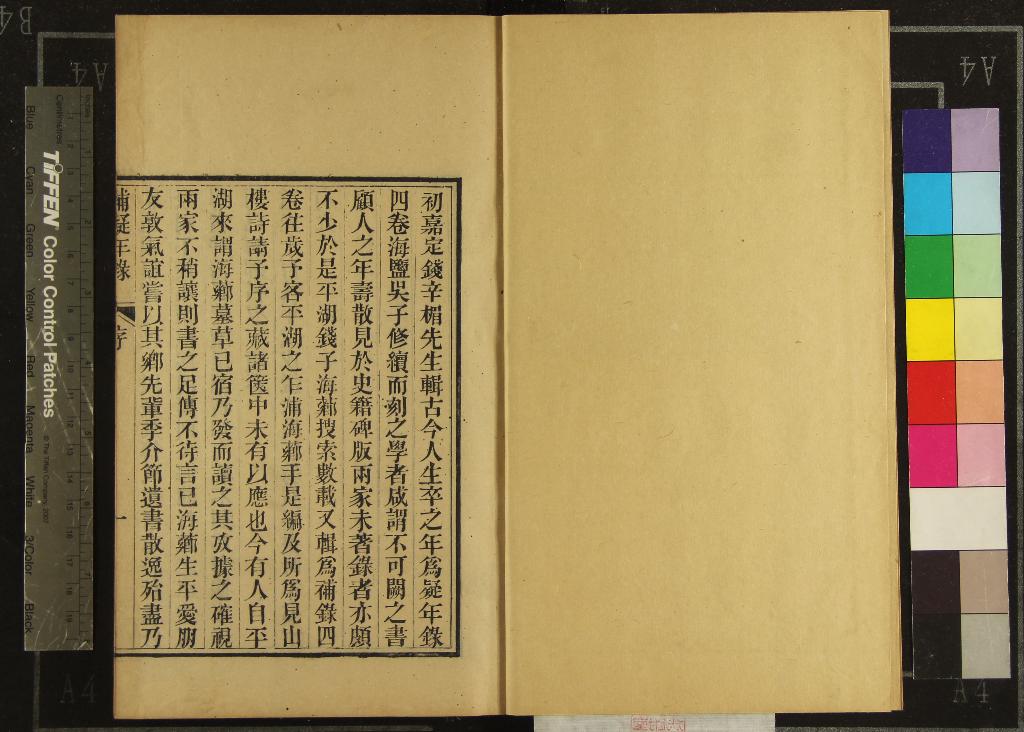 初嘉定錢辛楣先生輯古今人生卒之年爲疑年錄
四卷海鹽吳子修續而刻之學者咸謂不可闕之書
顧人之年壽散見於史籍碑版兩家未著錄者亦頗
不少於是平湖錢子海薌搜索數載又輯爲補錄四
卷往歲予客平湖之乍浦海薌手是編及所爲見山
樓詩請予序之藏諸篋中未有以應也今有人自平
湖來謂海薌墓草已宿乃發而讀之其攷據之確視
兩家不稍讓則書之足傳不待言已海薌生平愛朋
友敦氣誼嘗以其鄉先輩李介節遺書散逸殆盡乃
補疑年錄 序 一
TIFFEN Color Control Patches
© The Tiffen Company, 2007
Centimetres
Inches
Blue Cyan Green Yellow Red Magenta White 3/Color Black
B4
A4
A4
A4
A4